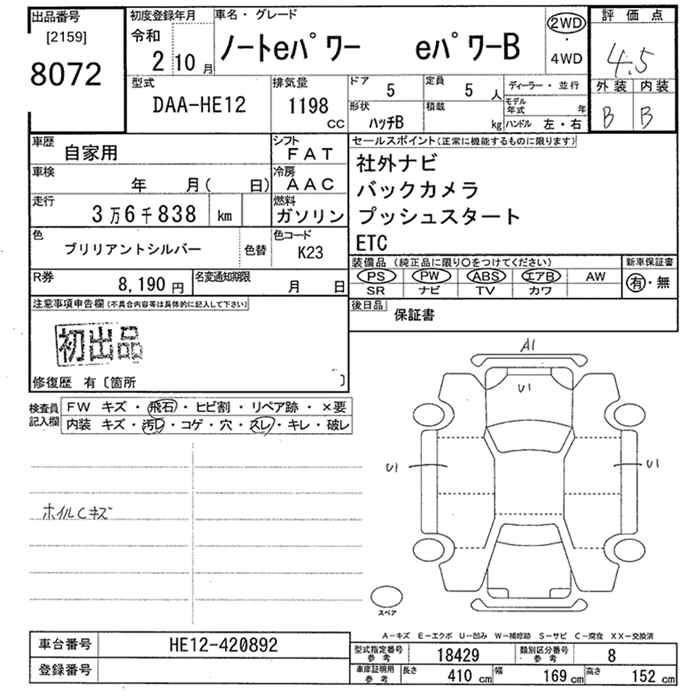 出品番号
[2159]
8072
初度登録年月
令和
2 10月
車名・グレード
ノートeパワー eパワーB
2WD
・
4WD
評価点
4.5
外装 内装
B B
型式
DAA-HE12
排気量
1198
CC
ドア
5
定員
5 人
形状
ハッチB
積載
kg
ディーラー・並行
モデル年式 年
ハンドル 左・右
車歴
自家用
シフト
FAT
車検
年 月( 日)
冷房
AAC
走行
3万6千838 km
燃料
ガソリン
色
ブリリアントシルバー
色替
色コード
K23
R券
8,190円
名変通知期限
月 日
セールスポイント(正常に機能するものに限ります)
社外ナビ
バックカメラ
プッシュスタート
ETC
装備品(純正品に限り○をつけてください)
新車保証書
PS PW ABS エアB AW
SR ナビ TV カワ
有・無
後日品
保証書
注意事項申告欄(不具合内容等は具体的に記入して下さい)
初出品
修復歴 有〔箇所 〕
検査員
記入欄
FW キズ・飛石・ヒビ割・リペア跡・×要
内装 キズ・汚レ・コゲ・穴・スレ・キレ・破レ
ホイルCキズ
A1
U1
U1
U1
スペア
A-キズ E-エクボ U-凹み W-補修跡 S-サビ C-腐食 XX-交換済
車台番号
HE12-420892
登録番号
型式指定番号
参考
18429
類別区分番号
参考
8
車庫証明用
参考
長さ
410 cm
幅
169 cm
高さ
152 cm